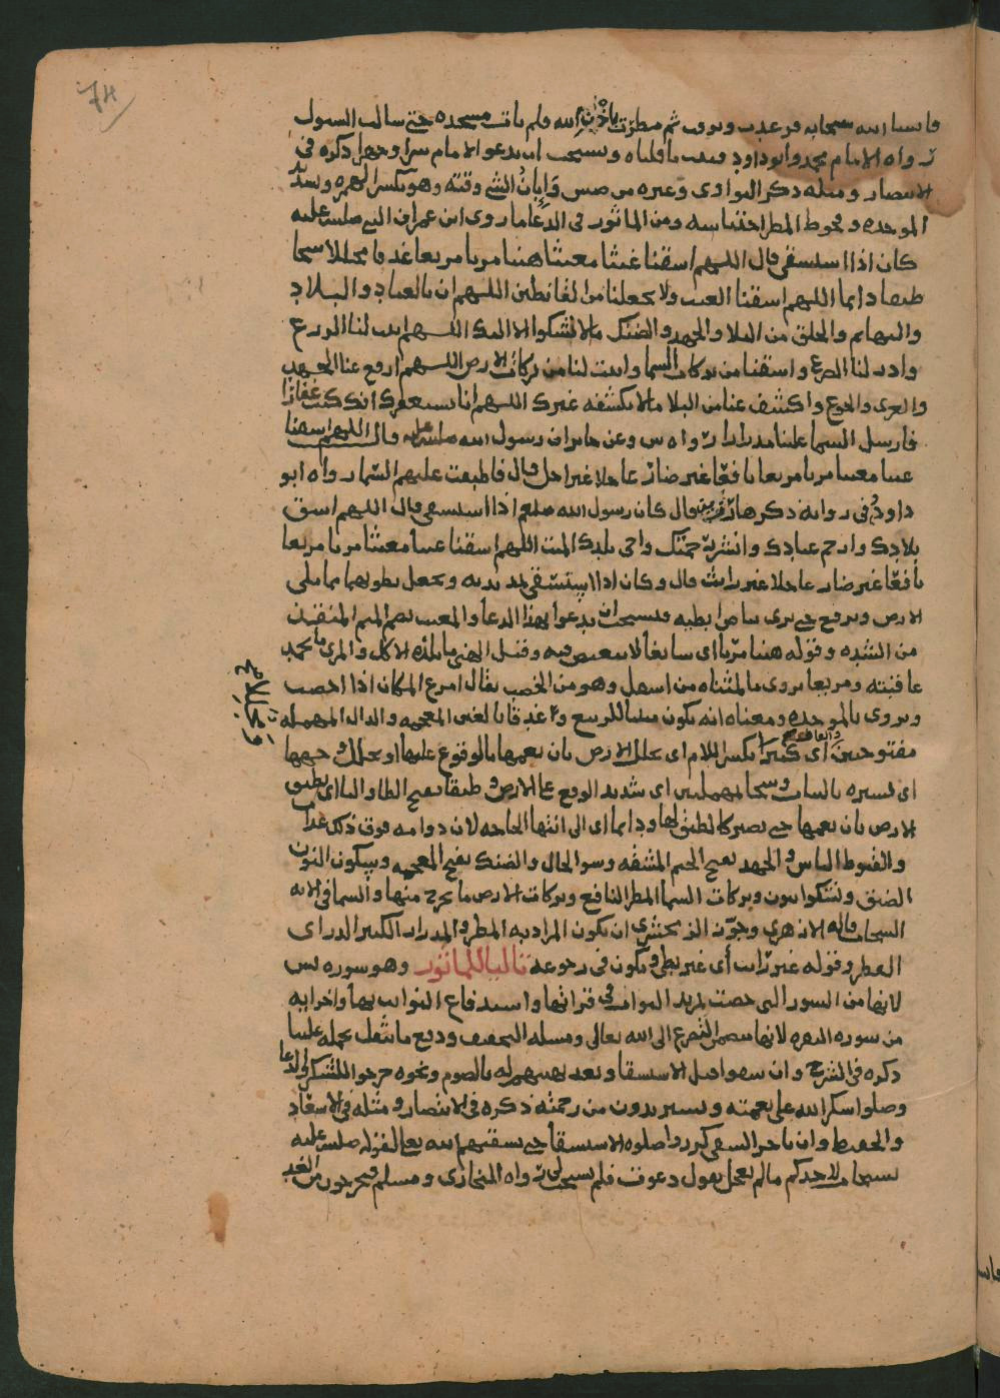 74
فانشا الله سحابه فرعدت وبرقت ثم مطرت باذن الله فلم يات مسجده حتى سالت السيول
رواه الامام محمد وابو داود ويستحب ان يدعو الامام سرا وجهرا ذكره في
الانتصار ومثله ذكر النواوي وغيره وإبان الشي وقته وهو بكسر الهمزه وتشديد
الموحده وقحوط المطر احتباسه ومن الماثور في الدعا ما روى ابن عمر ان النبي صلى الله عليه
كان اذا استسقى قال اللهم اسقنا غيثا مغيثا هنيا مريا مريعا غدقا مجللا سحا
طبقا دايما اللهم اسقنا الغيث ولا تجعلنا من القانطين اللهم ان بالعباد والبلاد
والبهايم والخلق من البلا والجهد والضنك مالا نشكوا الا اليك اللهم انبت لنا الزرع
وادر لنا الضرع واسقنا من بركات السما وانبت لنا من بركات الارض اللهم ارفع عنا الجهد
والعرى والجوع واكشف عنا من البلا مالا يكشفه غيرك اللهم انا نستغفرك انك كنت غفارا
فارسل السما علينا مدرارا رواه س وعن جابر ان رسول الله صلى الله عليه قال اللهم اسقنا
غيثا مغيثا مريا مريعا نافعا غير ضار عاجلا غير اجل قال فاطبقت عليهم السما رواه ابو
داود وفي روايه ذكرها رزين قال كان رسول الله صلعم اذا استسقى قال اللهم اسق
بلادك وارحم عبادك وانشر رحمتك واحي بلدك الميت اللهم اسقنا غيثا مغيثا مريا مريعا
نافعا غير ضار عاجلا غير رايث قال وكان اذا استسقى يمد يديه ويجعل بطونهما مما يلي
الارض ويرفع حتى يرى بياض ابطيه فيستحب ان يدعوا بهذا الدعا والمغيث بضم الميم المنقذ
من الشده وقوله هنيا مريا اى سايغا لا تنغيص فيه وقيل الهني ما يلذه الاكل والمري ما تحمد
عاقبته ومريعا يروى بالمثناه من اسفل وهو من الخصب يقال امرع المكان اذا اخصب
ويروى بالموحده ومعناه انه يكون منبتا للربيع وغدقا بالغين المعجمه والدال المهمله
مفتوحين اى كثيرا ومجللا بكسر اللام اى يجلل الارض بان يعمها بالوقوع عليها او يجلل وجهها
اى يستره بالنبات وسحا بمهملتين اى شديد الوقع على الارض وطبقا بفتح الطا والبا اى يطبق
الارض بان يعمها حتى يصير كالطبق لها ودايما اى الى انتها الحاجه لان دوامه فوق ذلك عذاب
والقنوط الياس والجهد بفتح الجيم المشقه وسو الحال والضنك بفتح المعجمه وسكون النون
الضيق ونشكوا بنون وبركات السما المطر النافع وبركات الارض ما يخرج منها والسما في الايه
السحاب قاله الازهري وجوز الزمخشري ان يكون المراد به المطر والمدرار الكثير الدر اى
القطر وقوله غير رايث أى غير بطي ويكون في رجوعه تاليا للماثور وهو سوره يس
لانها من السور التي خصت لمزيد الثواب في قراتها واستدفاع النوايب بها واخر ايه
من سوره البقره لانها تتضمن التضرع الى الله تعالى ومسله التخفيف ودفع ما يثقل تحمله علينا
ذكره في الشرح وان سقوا قبل الاستسقا وبعد تهييهم له بالصوم ونحوه خرجوا للشكر والدعا
وصلوا شكرا لله على نعمته ويستزيدون من رحمته ذكره في الانتصار ومثله في الاسعاد
والحفيظ وان تاخر السقي كرروا صلوه الاستسقا حتى يسقيهم الله تعالى لقوله صلى الله عليه
يستجاب لاحدكم مالم يعجل يقول دعوت فلم يستجب لي رواه البخاري ومسلم فيخرجون من الغد